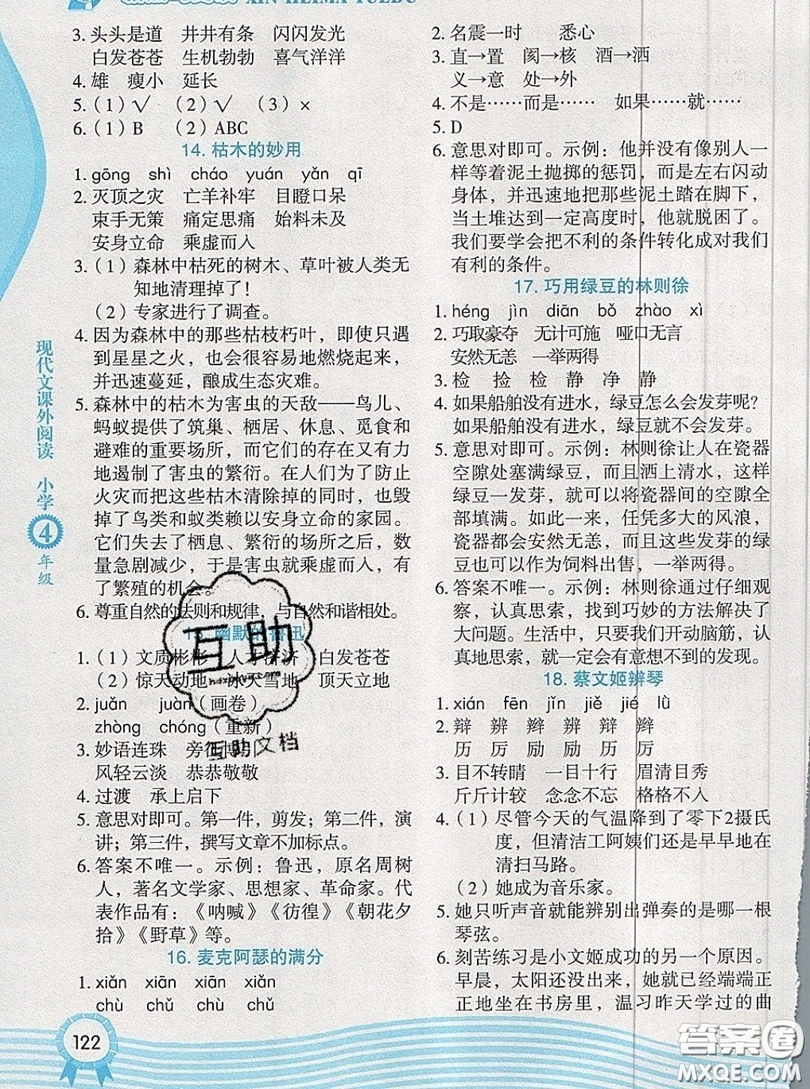 XIN HEIMA YUEDU
3. 头头是道 井井有条 闪闪发光
白发苍苍 生机勃勃 喜气洋洋
4. 雄 瘦小 延长
5.（1）√ （2）√ （3）×
6.（1）B （2）ABC
14. 枯木的妙用
1. gōng shì cháo yuán yǎn qī
2. 灭顶之灾 亡羊补牢 目瞪口呆
束手无策 痛定思痛 始料未及
安身立命 乘虚而入
3.（1）森林中枯死的树木、草叶被人类无
知地清理掉了！
（2）专家进行了调查。
4. 因为森林中的那些枯枝朽叶，即使只遇
到星星之火，也会很容易地燃烧起来，
并迅速蔓延，酿成生态灾难。
5. 森林中的枯木为害虫的天敌——鸟儿、
蚂蚁提供了筑巢、栖居、休息、觅食和
避难的重要场所，而它们的存在又有力
地遏制了害虫的繁衍。在人们为了防止
火灾而把这些枯木清除掉的同时，也毁
掉了鸟类和蚁类赖以安身立命的家园。
它们失去了栖息、繁衍的场所之后，数
量急剧减少，于是害虫就乘虚而入，有
了繁殖的机会。
6. 尊重自然的法则和规律，与自然和谐相处。
15. 幽默的鲁迅
1.（1）文质彬彬 人才济济 白发苍苍
（2）惊天动地 冰天雪地 顶天立地
2. juǎn juàn（画卷）
zhòng chóng（重新）
3. 妙语连珠 旁
风轻云淡 恭恭敬敬
4. 过渡 承上启下
5. 意思对即可。第一件，剪发；第二件，演
讲；第三件，撰写文章不加标点。
6. 答案不唯一。示例：鲁迅，原名周树
人，著名文学家、思想家、革命家。代
表作品有：《呐喊》《彷徨》《朝花夕
拾》《野草》等。
16. 麦克阿瑟的满分
1. xiǎn xiān xiān xiǎn
chù chǔ chù chǔ
2. 名震一时 悉心
3. 直→置 阂→核 酒→洒
义→意 处→外
4. 不是……而是…… 如果……就……
5. D
6. 意思对即可。示例：他并没有像别人一
样等着泥土抛掷的惩罚，而是左右闪动
身体，并迅速地把那些泥土踏在脚下，
当土堆达到一定高度时，他就脱困了。
我们要学会把不利的条件转化成对我们
有利的条件。
17. 巧用绿豆的林则徐
1. héng jìn diān bǒ zhào xì
2. 巧取豪夺 无计可施 哑口无言
安然无恙 一举两得
3. 检 捡 检 静 净 静
4. 如果船舶没有进水，绿豆怎么会发芽呢？
如果船舶没有进水，绿豆就不会发芽。
5. 意思对即可。示例：林则徐让人在瓷器
空隙处塞满绿豆，而且洒上清水，这样
绿豆一发芽，就可以将瓷器间的空隙全
部填满。如此一来，任凭多大的风浪，
瓷器都会安然无恙，而且这些发芽的绿
豆也可以作为饲料出售，一举两得。
6. 答案不唯一。示例：林则徐通过仔细观
察，认真思索，找到巧妙的方法解决了
大问题。生活中，只要我们开动脑筋，认
真地思索，就一定会有意想不到的发现。
18. 蔡文姬辨琴
1. xián fēn jīn jiě jié lù
2. 辩 辨 辫 辩 辨 辫
历 厉 励 励 历 厉
3. 目不转睛 一目十行 眉清目秀
斤斤计较 念念不忘 格格不入
4.（1）尽管今天的气温降到了零下2摄氏
度，但清洁工阿姨们还是早早地在
清扫马路。
（2）她成为音乐家。
5. 她只听声音就能辨别出弹奏的是哪一根
琴弦。
6. 刻苦练习是小文姬成功的另一个原因。
早晨，太阳还没出来，她就已经端端正
正地坐在书房里，温习昨天学过的曲
现代文课外阅读 小学4年级
122
互助
互助文档
答案圈
MXQE.COM